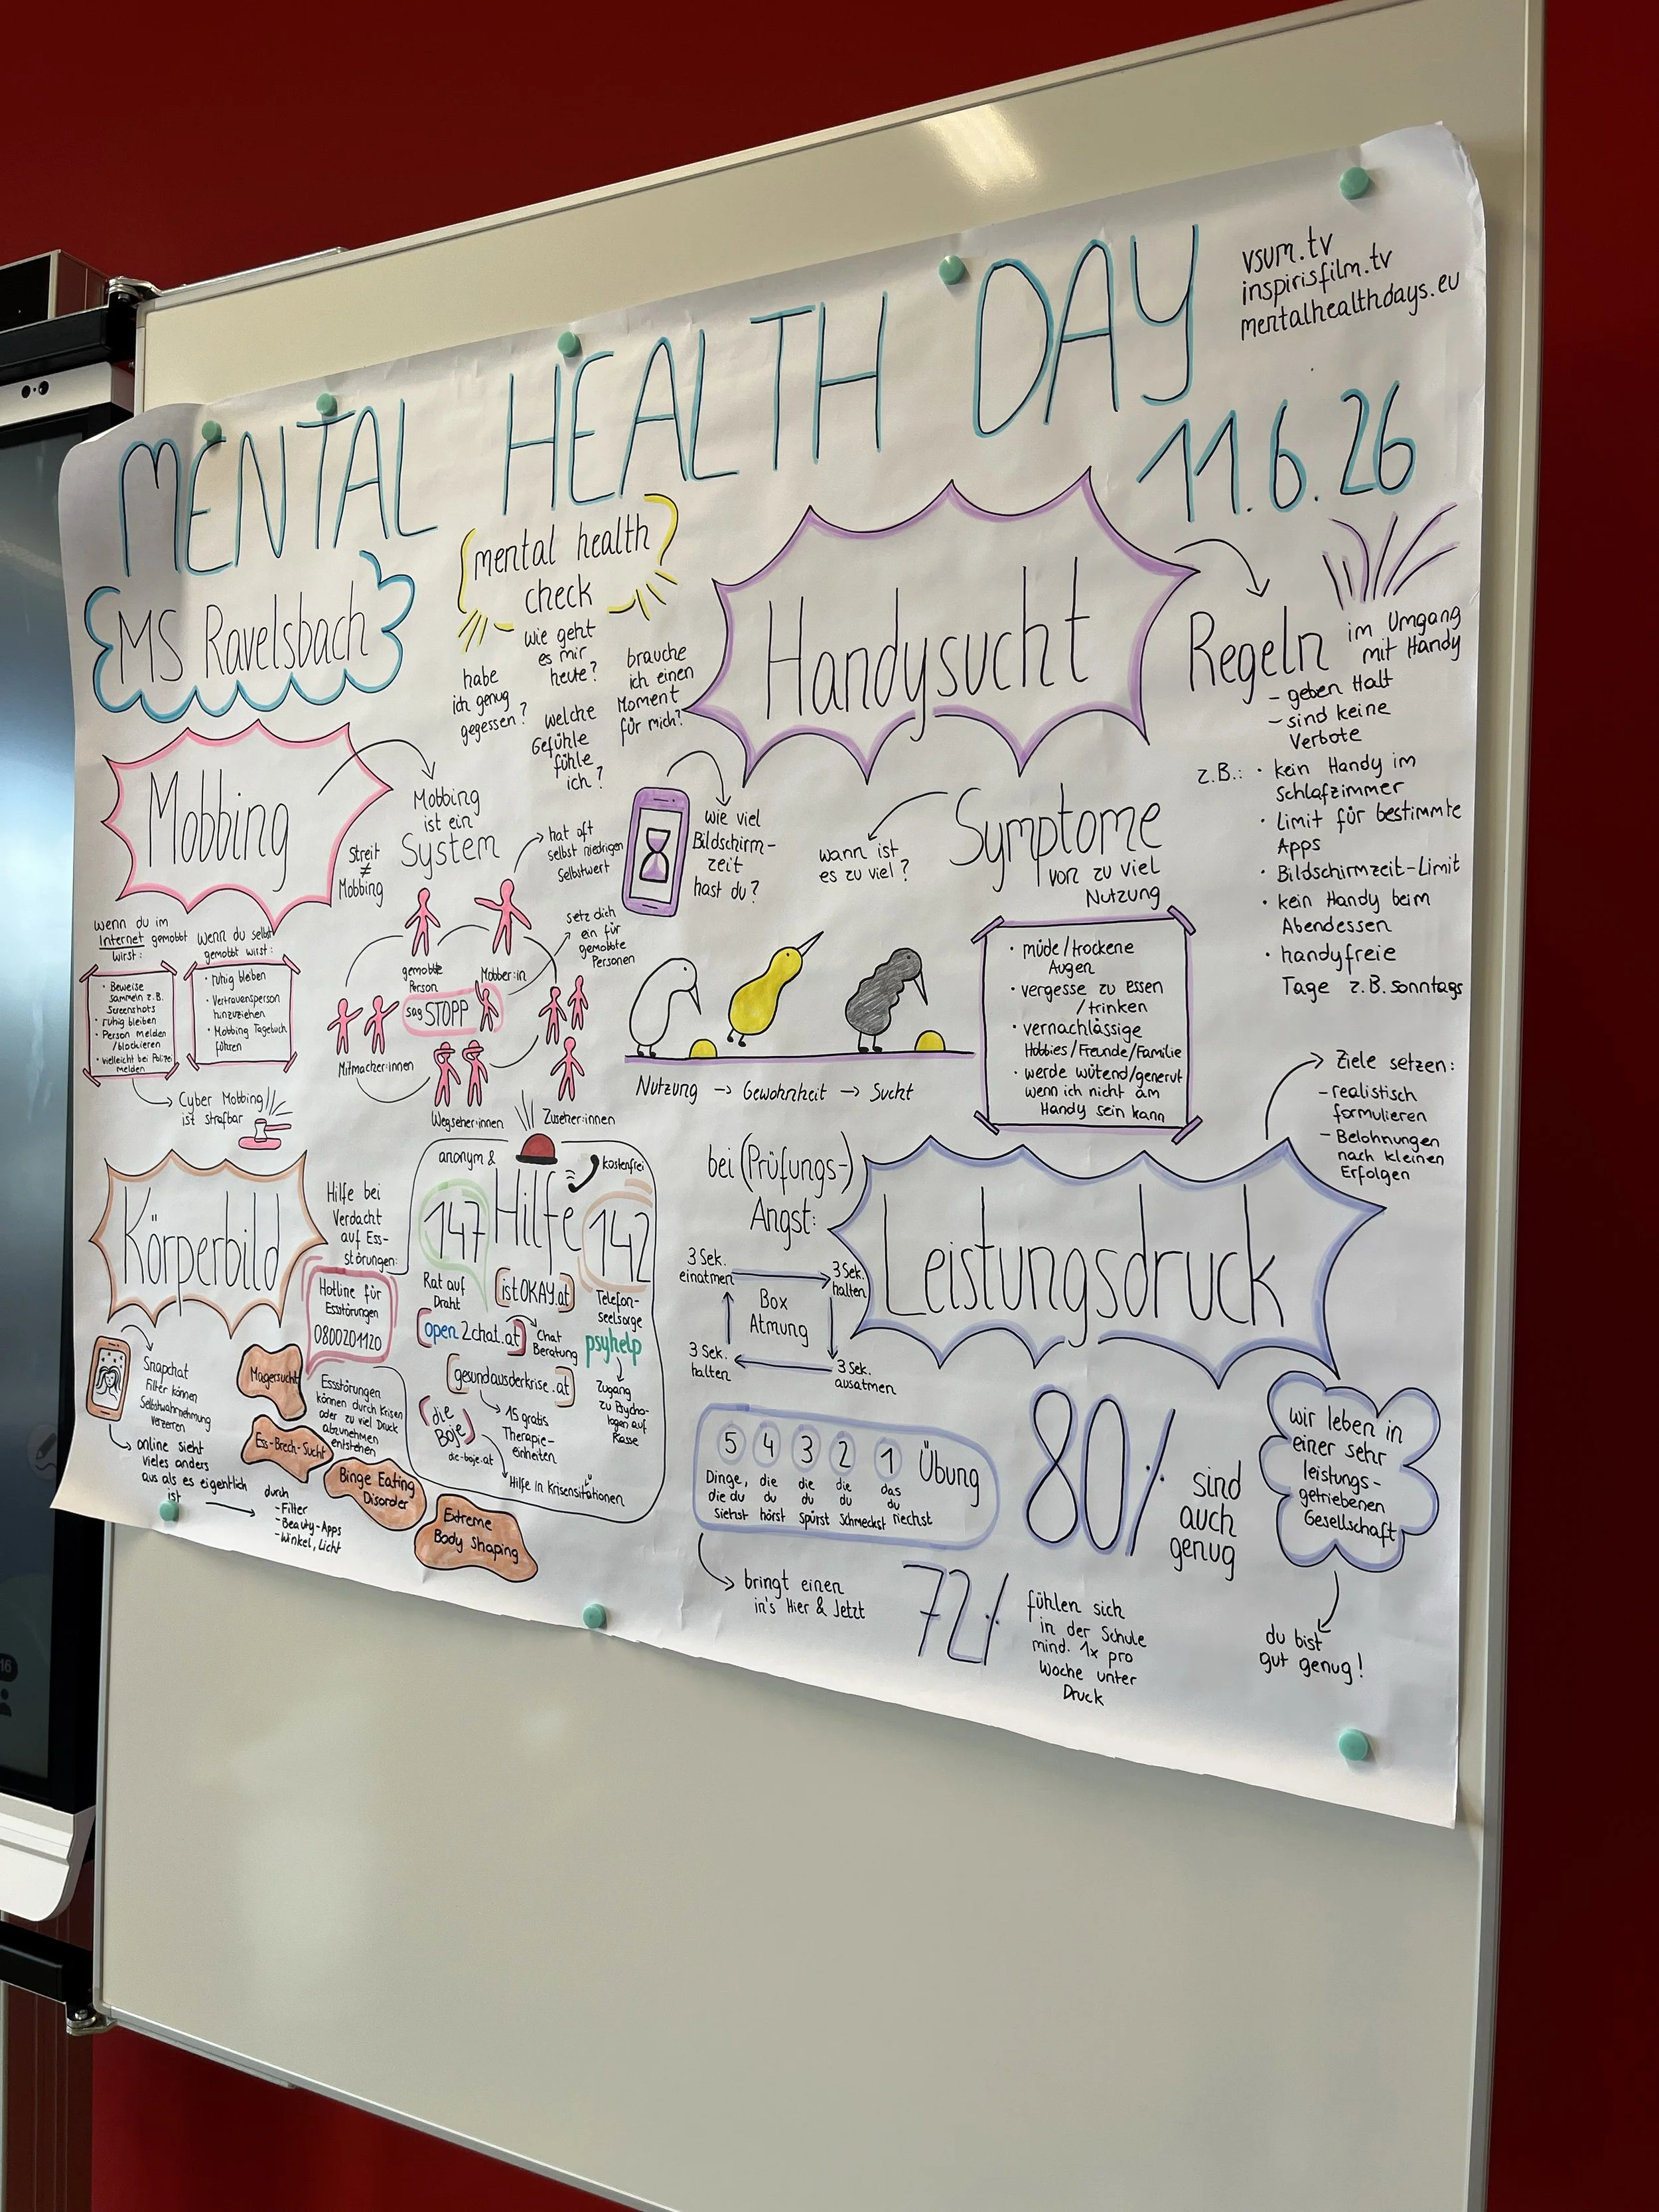 vsum.tv
inspirisfilm.tv
mentalhealthdays.eu
MENTAL HEALTH DAY
11.6.26
MS Ravelsbach
mental health
check
wie geht
es mir
heute?
habe
ich genug
gegessen?
welche
Gefühle
fühle
ich?
brauche
ich einen
Moment
für mich?
Handysucht
Regeln
im Umgang
mit Handy
- geben Halt
- sind keine
Verbote
z.B.:
· kein Handy im
Schlafzimmer
· Limit für bestimmte
Apps
· Bildschirmzeit-Limit
· kein Handy beim
Abendessen
· handyfreie
Tage z.B. Sonntags
wie viel
Bildschirm-
zeit
hast du?
wann ist
es zu viel?
Symptome
von zu viel
Nutzung
· müde/trockene
Augen
· vergesse zu essen
/trinken
· vernachlässige
Hobbies/Freunde/Familie
· werde wütend/genervt
wenn ich nicht am
Handy sein kann
Nutzung → Gewohnheit → Sucht
Mobbing
Streit
≠
Mobbing
Mobbing
ist ein
System
hat oft
selbst niedrigen
Selbstwert
setz dich
ein für
gemobbte
Personen
gemobbte
Person
Mobber:in
sag STOPP
Mitmacher:innen
Wegseher:innen
Zuseher:innen
wenn du im
Internet gemobbt
wirst:
· Beweise
sammeln z.B.
Screenshots
· ruhig bleiben
· Person melden
/blockieren
· vielleicht bei Polizei
melden
wenn du selbst
gemobbt wirst:
· ruhig bleiben
· Vertrauensperson
hinzuziehen
· Mobbing Tagebuch
führen
Cyber Mobbing
ist strafbar
Körperbild
Hilfe bei
Verdacht
auf Ess-
störungen:
Hotline für
Essstörungen
0800201120
Snapchat
Filter können
Selbstwahrnehmung
verzerren
online sieht
vieles anders
aus als es eigentlich
ist
durch
- Filter
- Beauty-Apps
- Winkel, Licht
Magersucht
Ess-Brech-Sucht
Binge Eating
Disorder
Extreme
Body Shaping
Essstörungen
können durch Krisen
oder zu viel Druck
abzunehmen
entstehen
anonym &
kostenfrei
Hilfe
147
Rat auf
Draht
142
Telefon-
seelsorge
istOKAY.at
open2chat.at
Chat
Beratung
psyhelp
Zugang
zu Psycho-
logen auf
Kasse
gesundausderkrise.at
15 gratis
Therapie-
einheiten
die
Boje
die-boje.at
Hilfe in Krisensituationen
bei (Prüfungs-)
Angst:
3 Sek.
einatmen
3 Sek.
halten
Box
Atmung
3 Sek.
halten
3 Sek.
ausatmen
Leistungsdruck
Ziele setzen:
- realistisch
formulieren
- Belohnungen
nach kleinen
Erfolgen
5 4 3 2 1 Übung
Dinge,
die du
siehst
die
du
hörst
die
du
spürst
die
du
schmeckst
das
du
riechst
bringt einen
in's Hier & Jetzt
80%
sind
auch
genug
72%
fühlen sich
in der Schule
mind. 1x pro
Woche unter
Druck
wir leben in
einer sehr
leistungs-
getriebenen
Gesellschaft
du bist
gut genug!